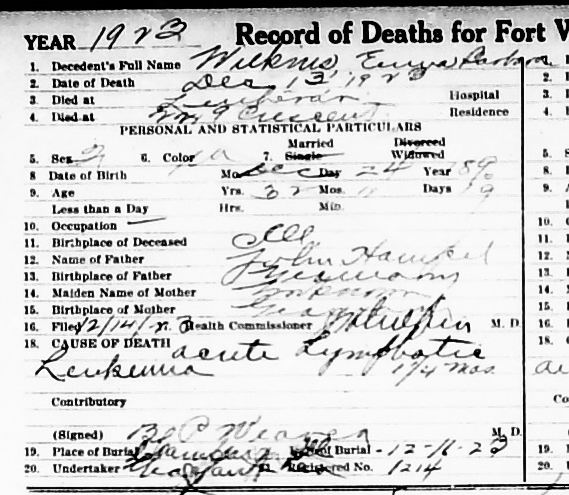 YEAR 1923 Record of Deaths for Fort W
1. Decedent's Full Name Wilkins Emma Barbara
2. Date of Death Dec 13 1923
3. Died at Lutheran Hospital
4. Died at Crescent Residence
PERSONAL AND STATISTICAL PARTICULARS
Married Divorced
5. Sex 6. Color 7. Single Widowed
8 Date of Birth Mo. Dec Day 24 Year 189
9. Age Yrs. 32 Mos. 11 Days 19
Less than a Day Hrs. Min.
10. Occupation —
11. Birthplace of Deceased Ill
12. Name of Father John
13. Birthplace of Father Germany
14. Maiden Name of Mother Unknown
15. Birthplace of Mother Germany
16. Filed 12/14/23 Health Commissioner M. D.
18. CAUSE OF DEATH acute Lymphatic
Leukemia 1 1/4 mos.
Contributory
(Signed) B. P. Weaver M. D.
19. Place of Burial Date of Burial 12-16-23
20. Undertaker Registered No. 1214